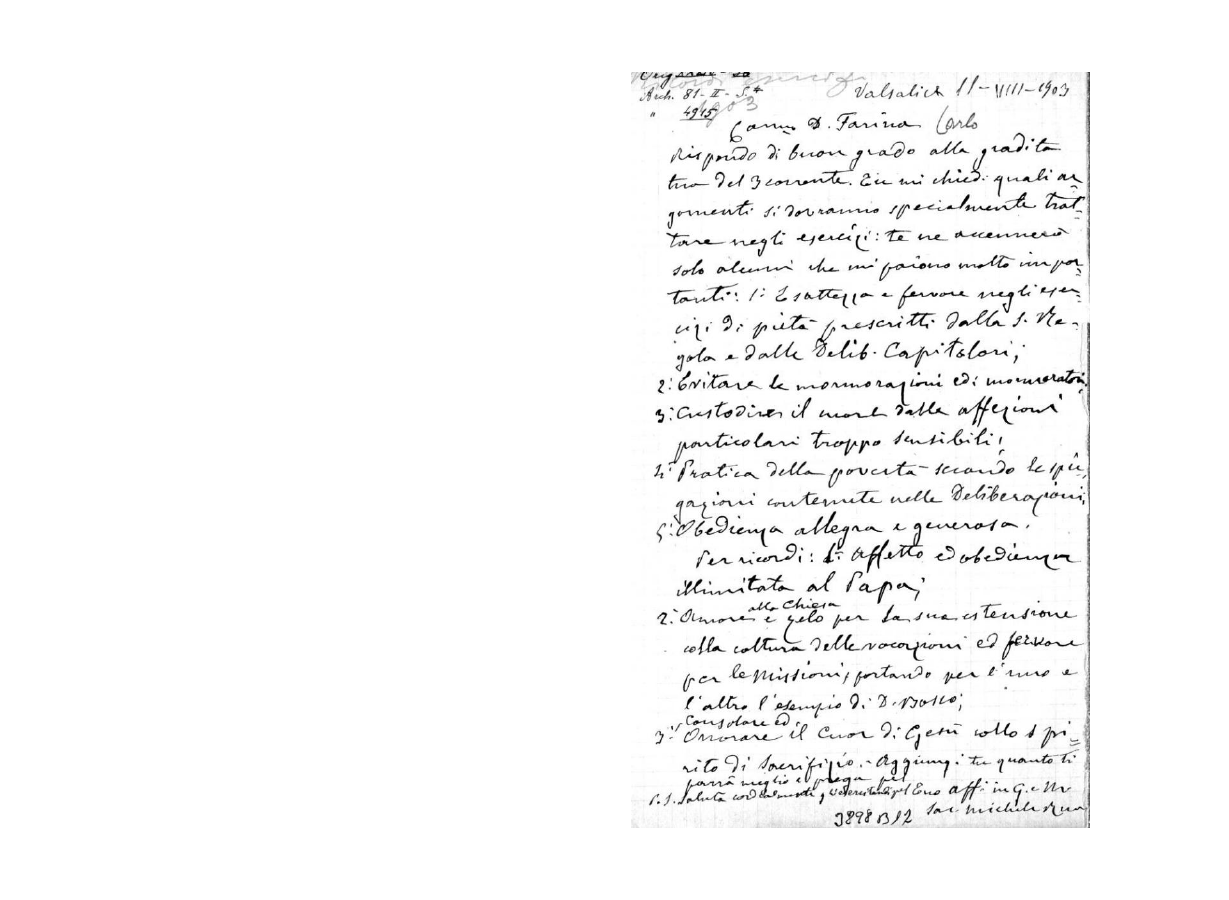 Arch. 81-II-S.4
" 4915
1903
Valsalice 11-VIII-1903
Carmo D. Farina Carlo
Rispondo di buon grado alla gradita
tua del 3 corrente. Tu mi chiedi quali ar-
gomenti si dovranno specialmente trat-
tare negli esercizi: te ne accennerò
solo alcuni che mi paiono molto impor-
tanti: 1° Esattezza e fervore negli eser-
cizi di pietà prescritti dalla S. Re-
gola e dalle Delib. Capitolari;
2° Evitare le mormorazioni ed i mormoratori;
3° Custodire il cuore dalle affezioni
particolari troppo sensibili;
4° Pratica della povertà secondo le spie-
gazioni contenute nelle Deliberazioni;
5° Obedienza allegra e generosa.
Per ricordi: 1° Affetto ed obedienza
illimitata al Papa;
alla Chiesa
2° Amore e zelo per la sua estensione
colla coltura delle vocazioni ed fervore
per le Missioni, portando per l'uno e
l'altro l'esempio di D. Bosco;
Consolare ed
3° Onorare il Cuor di Gesù collo spi-
rito di sacrifizio. - Aggiungi tu quanto ti
parrà meglio e prega pel
P.S. Saluta cordialmente gli esercitandi pel Tuo aff. in G. e M.
Sac. Michele Rua
3898 B12